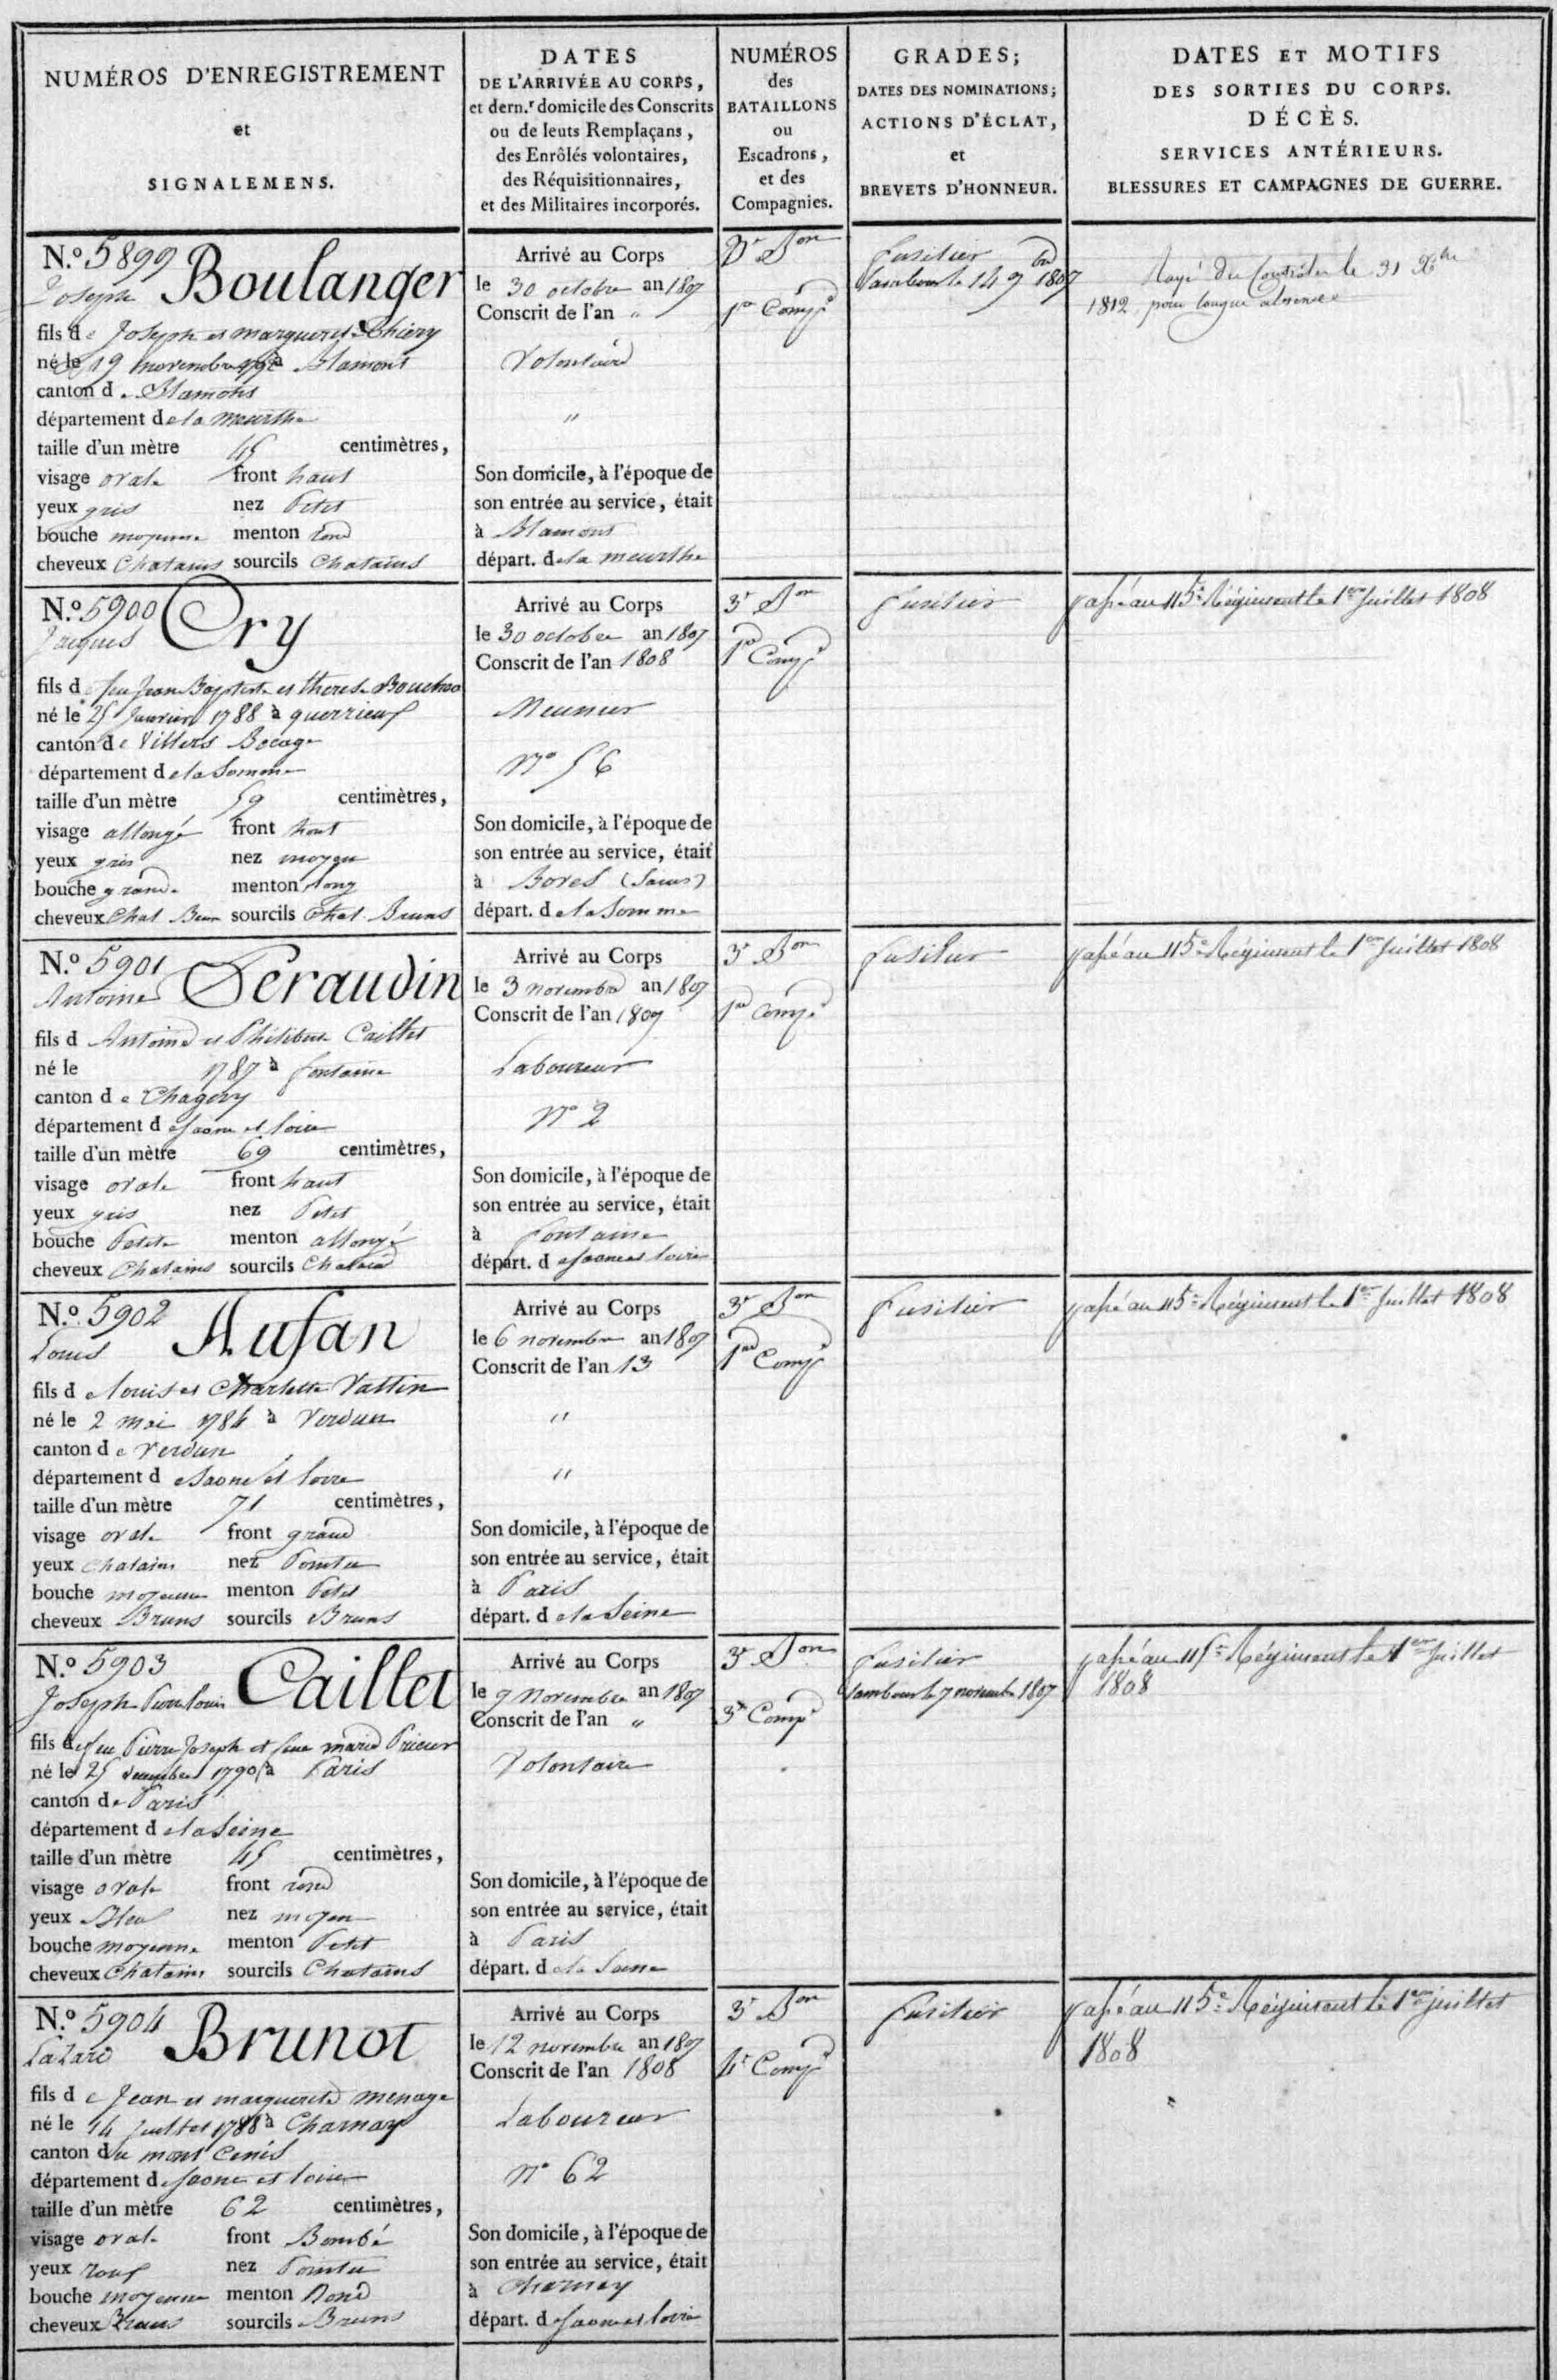 NUMÉROS D'ENREGISTREMENT
et
SIGNALEMENS.
DATES
DE L'ARRIVÉE AU CORPS,
et dern.r domicile des Conscrits
ou de leuts Remplaçans,
des Enrôlés volontaires,
des Réquisitionnaires,
et des Militaires incorporés.
NUMÉROS
des
BATAILLONS
ou
Escadrons,
et des
Compagnies.
GRADES;
DATES DES NOMINATIONS;
ACTIONS D'ÉCLAT,
et
BREVETS D'HONNEUR.
DATES ET MOTIFS
DES SORTIES DU CORPS.
DÉCÈS.
SERVICES ANTÉRIEURS.
BLESSURES ET CAMPAGNES DE GUERRE.
N.o 5899 Boulanger
Joseph
fils de Joseph et marguerite Thiery
né le 19 novembre à Blamont
canton de Blamont
département de la meurthe
taille d'un mètre 45 centimètres,
visage ovale front haut
yeux gris nez Petit
bouche moyenne menton rond
cheveux Chatains sourcils Chatains
Arrivé au Corps
le 30 octobre an 1807
Conscrit de l'an "
Volontaire
"
Son domicile, à l'époque de
son entrée au service, était
à Blamont
départ. de la meurthe
Bon
1re Compie
Fusilier
Tambour le 14 9bre 1807
Rayé du Contrôle le 31 Xbre
1812 pour longue absence
N.o 5900 Ory
Jacques
fils de feu Jean Baptiste et therese
né le 25 Janvier 1788 à querrieux
canton de Villers Bocage
département de la Somme
taille d'un mètre 59 centimètres,
visage allongé front haut
yeux gris nez moyen
bouche grande menton long
cheveux Chat Brun sourcils Chat Bruns
Arrivé au Corps
le 30 octobre an 1807
Conscrit de l'an 1808
Meunier
No 56
Son domicile, à l'époque de
son entrée au service, était
à Boves
départ. de la Somme
3e Bon
1re Compie
Fusilier
passé au 115e Régiment le 1er Juillet 1808
N.o 5901 Peraudin
Antoine
fils d Antoine et Philiberte Caillet
né le 1787 à fontaine
canton de Chagny
département de Saone et loire
taille d'un mètre 69 centimètres,
visage ovale front haut
yeux gris nez Petit
bouche Petite menton allongé
cheveux Chatains sourcils Chatains
Arrivé au Corps
le 3 novembre an 1807
Conscrit de l'an 1807
Laboureur
No 2
Son domicile, à l'époque de
son entrée au service, était
à fontaine
départ. de Saone et loire
3e Bon
1re Compie
Fusilier
passé au 115e Régiment le 1er Juillet 1808
N.o 5902 Aufan
Louis
fils de louis et Charlotte Vattin
né le 2 mai 1784 à Verdun
canton de Verdun
département de Saone et loire
taille d'un mètre 71 centimètres,
visage ovale front grand
yeux chatains nez Pointu
bouche moyenne menton Petit
cheveux Bruns sourcils Bruns
Arrivé au Corps
le 6 novembre an 1807
Conscrit de l'an 13
"
"
Son domicile, à l'époque de
son entrée au service, était
à Paris
départ. de la Seine
3e Bon
1re Compie
Fusilier
passé au 115e Régiment le 1er Juillet 1808
N.o 5903 Caillet
Joseph Pierre louis
fils de feu Pierre Joseph et feue marie Prieur
né le 25 décembre 1790 à Paris
canton de Paris
département de la Seine
taille d'un mètre 45 centimètres,
visage ovale front rond
yeux Bleu nez moyen
bouche moyenne menton Petit
cheveux Chatains sourcils Chatains
Arrivé au Corps
le 7 Novembre an 1807
Conscrit de l'an "
Volontaire
Son domicile, à l'époque de
son entrée au service, était
à Paris
départ. de la Seine
3e Bon
3e Compie
Fusilier
Tambour le 7 novembre 1807
passé au 115e Régiment le 1er Juillet
1808
N.o 5904 Brunot
Lazare
fils de Jean et marguerite menage
né le 14 Juillet 1788 à Charnay
canton du mont Cenis
département de Saone et loire
taille d'un mètre 62 centimètres,
visage ovale front Bombé
yeux roux nez Pointu
bouche moyenne menton Rond
cheveux Bruns sourcils Bruns
Arrivé au Corps
le 12 novembre an 1807
Conscrit de l'an 1808
Laboureur
No 62
Son domicile, à l'époque de
son entrée au service, était
à Charnay
départ. de Saone et loire
3e Bon
4e Compie
Fusilier
passé au 115e Régiment le 1er Juillet
1808